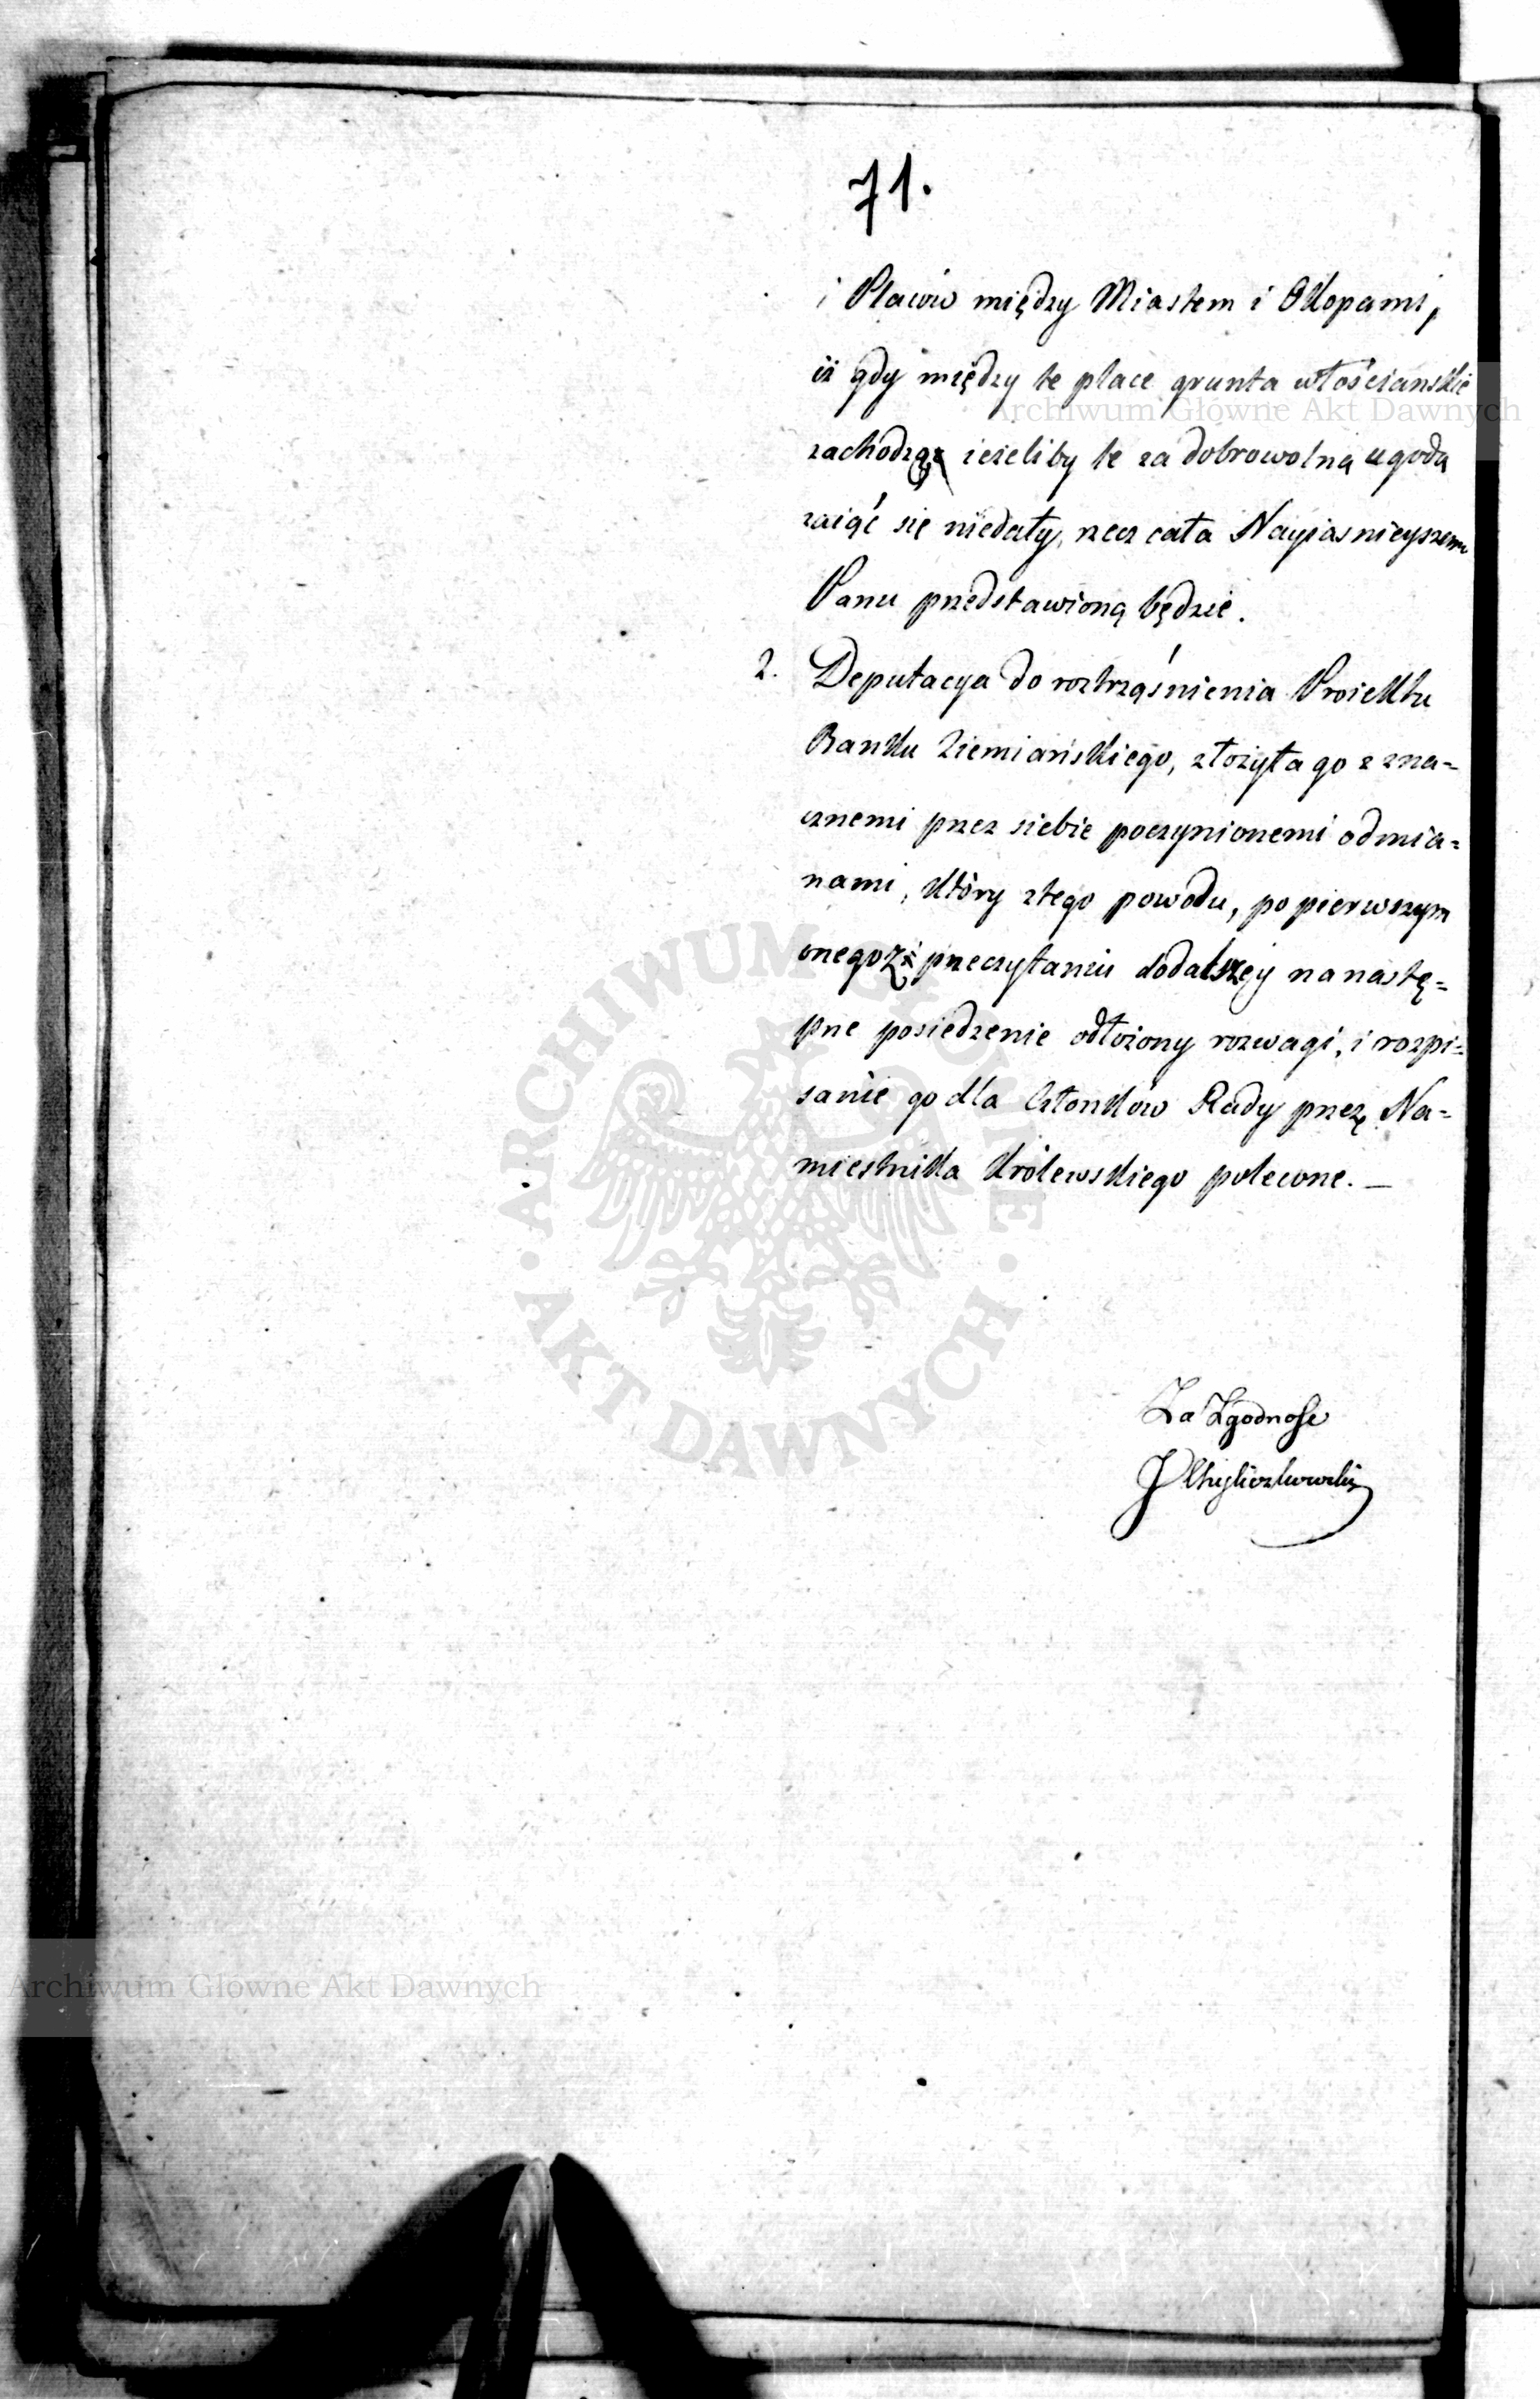 71.
i Placów między Miastem i Okopami,
iż gdy między te place grunta włościańskie
Archiwum Główne Akt Dawnych
zachodzą, ieżeliby te za dobrowolną ugodą
zaiąć się niedały, rzecz cała Nayiasnieyszemu
Panu przedstawioną będzie.
2. Deputacya do roztrząśnienia Proiektu
Banku Ziemiańskiego, złożyła go z zna=
cznemi przez siebie poczynionemi odmia=
nami, który ztego powodu, po pierwszym
onegoż przeczytaniu dodalszey na nastę=
pne posiedzenie odłożony rozwagi, i rozpi=
sanie go dla Członków Rady przez Na=
miestnika Królewskiego polecone. —
ARCHIWUM GŁÓWNE
AKT DAWNYCH
Za Zgodność
Archiwum Główne Akt Dawnych